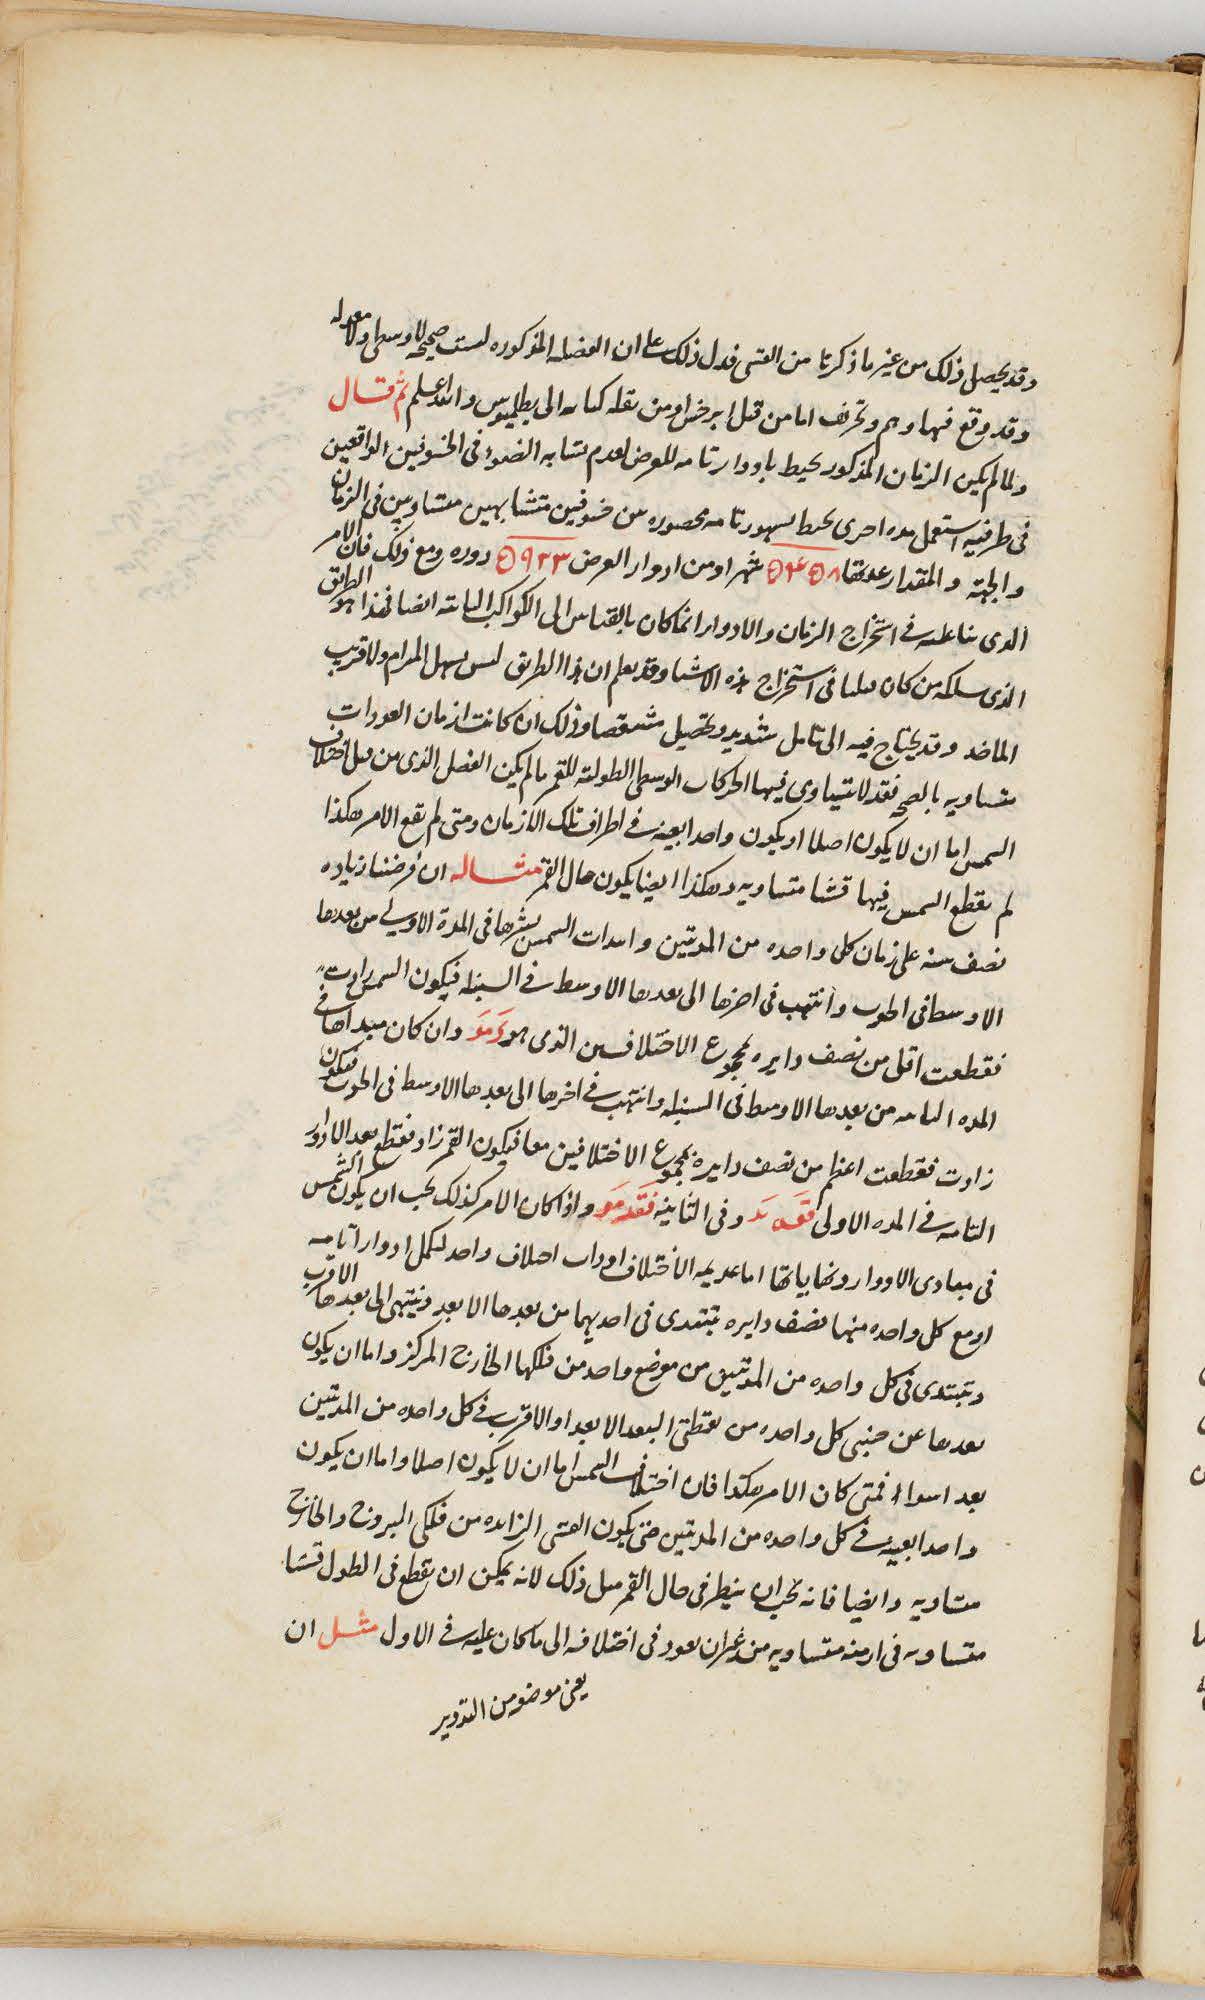 وقد يحصل ذلك من غير ما ذكرنا من القسى فدل ذلك على ان الفضله المذكوره ليست صحيحه لا وسطى ولا معدله
وقد وقع فيها وهم وتحريف اما من قبل ابرخس او من نقله كتابه الى بطلميوس والله اعلم ثم قال
ولما لم يكن الزمان المذكور يحيط بادوار تامه للعرض لعدم تشابه الضوء فى الخسوفين الواقعين
فى طرفيه استعمل مده اخرى يحيط بشهور تامه محصوره من خسوفين متشابهين متساويين فى الزمان
والجهه والمقدار عدتها ٥٤٥٨ شهرا ومن ادوار العرض ٥٩٢٣ دوره ومع ذلك فان الامر
الذى بنا عليه فى استخراج الزمان والادوار انما كان بالقياس الى الكواكب الثابته ايضا فهذا هو الطريق
الذى سلكه من كان قبلنا فى استخراج هذه الاشيا وقد يعلم ان هذا الطريق ليس بسهل المرام ولا قريب
الماخذ وقد يحتاج فيه الى تامل شديد وتحصيل مستقصا وذلك ان كانت ازمان العودات
متساويه بالصحه فقد لا تتساوى فيها الحركات الوسطى الطوليه للقمر ما لم يكن الفضل الذى من قبل اختلاف
الشمس اما ان لا يكون اصلا او يكون واحدا بعينه فى اطراف تلك الازمان ومتى لم يقع الامر هكذا
لم يقطع الشمس فيها قسيا متساويه وهكذا ايضا يكون حال القمر مثاله ان فرضنا زياده
نصف سنه على زمان كل واحده من المدتين وابتدات الشمس بسيرها فى المدة الاولى من بعدها
الاوسط فى الحوت وانتهت فى اخرها الى بعدها الاوسط فى السنبله فيكون الشمس
فقطعت اقل من نصف دايره بمجموع الاختلافين الذى هو د مو وان كان مبداها فى
المده الثانيه من بعدها الاوسط فى السنبله وانتهت فى اخرها الى بعدها الاوسط فى الحوت فيكون
زادت فقطعت اعظم من نصف دايره بمجموع الاختلافين معا فيكون القمر زاد فقطع بعد الادوار
التامه فى المده الاولى قعه يد وفى الثانيه قفد مو واذا كان الامر كذلك يجب ان يكون الشمس
فى مبادى الادوار ونهاياتها اما عديمه الاختلاف او ذات اختلاف واحد لتكمل ادوارا تامه
او مع كل واحده منها نصف دايره تبتدى فى احديهما من بعدها الابعد وينتهى الى بعدها الاقرب
وتبتدى فى كل واحده من المدتين من موضع واحد من فلكها الخارج المركز واما ان يكون
بعدها عن جنبى كل واحده من نقطتى البعد الابعد او الاقرب فى كل واحده من المدتين
بعدا سواء فمتى كان الامر هكذا فان اختلاف الشمس اما ان لا يكون اصلا واما ان يكون
واحدا بعينه فى كل واحده من المدتين حتى يكون القسى الزايده من فلكى البروج والخارج
متساويه وايضا فانه يجب ان ينظر فى حال القمر مثل ذلك لانه يمكن ان يقطع فى الطول قسيا
متساويه فى ازمنه متساويه من غير ان يعود فى اختلافه الى ما كان عليه فى الاول مثل ان
يعنى موضعه من التدوير